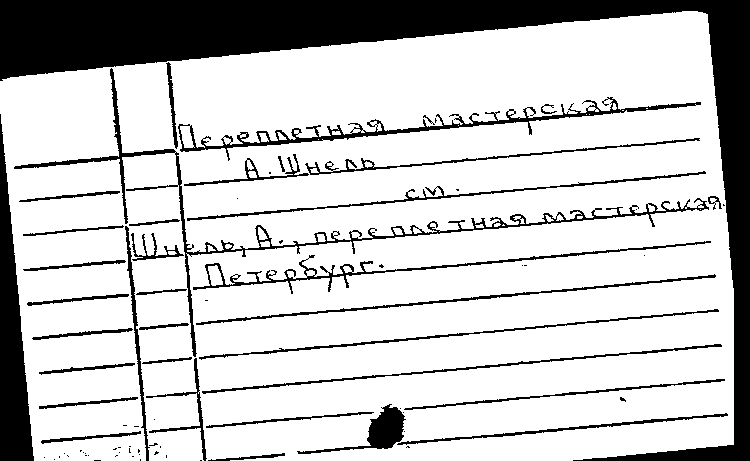 Переплетная мастерская
А. Шнель
см.
Шнель, А., переплетная мастерская.
Петербург.